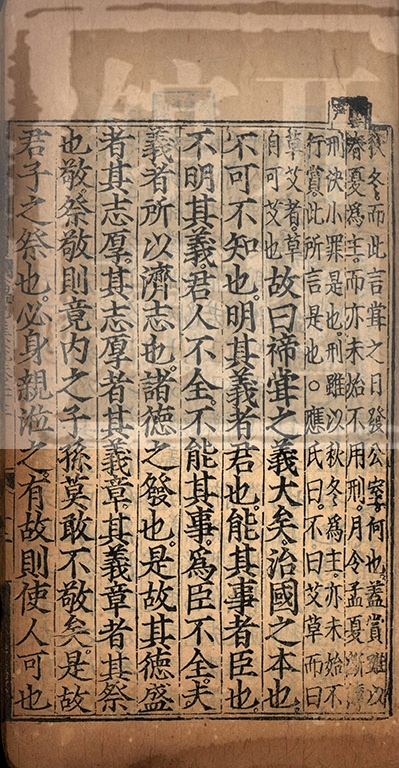 秋冬。而此言甞之日發公室何也。蓋賞雖以
春夏爲主。而亦未始不用刑。月令孟夏斷薄
刑決小罪是也。刑雖以秋冬爲主。亦未始不
行賞此所言是也。○應氏曰。不曰艾草而曰
草艾者。草
自可艾也
故曰禘甞之義大矣。治國之本也。
不可不知也。明其義者君也。能其事者臣也。
不明其義。君人不全。不能其事。爲臣不全。夫
義者所以濟志也。諸德之發也。是故其德盛
者其志厚。其志厚者其義章。其義章者其祭
也敬。祭敬則竟內之子孫莫敢不敬矣。是故
君子之祭也。必身親涖之。有故則使人可也